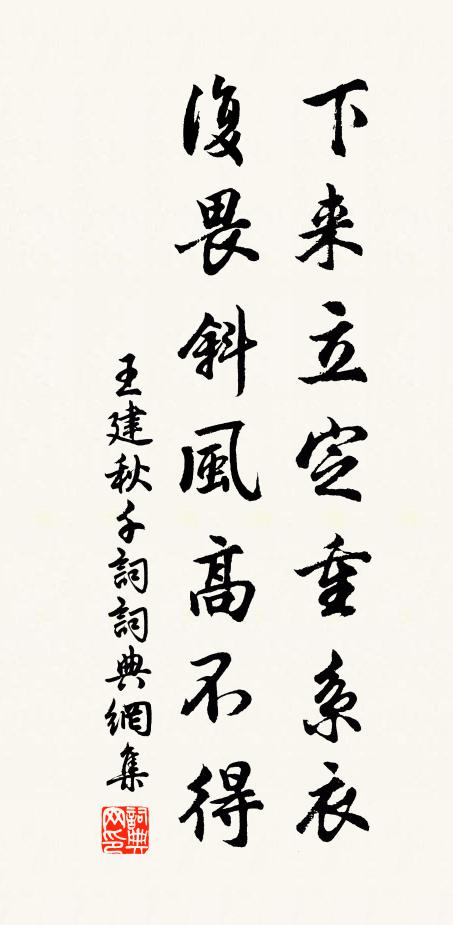 下来立定重系衣
復畏斜風高不得
王建秋千詞詞典網集
詞典网印